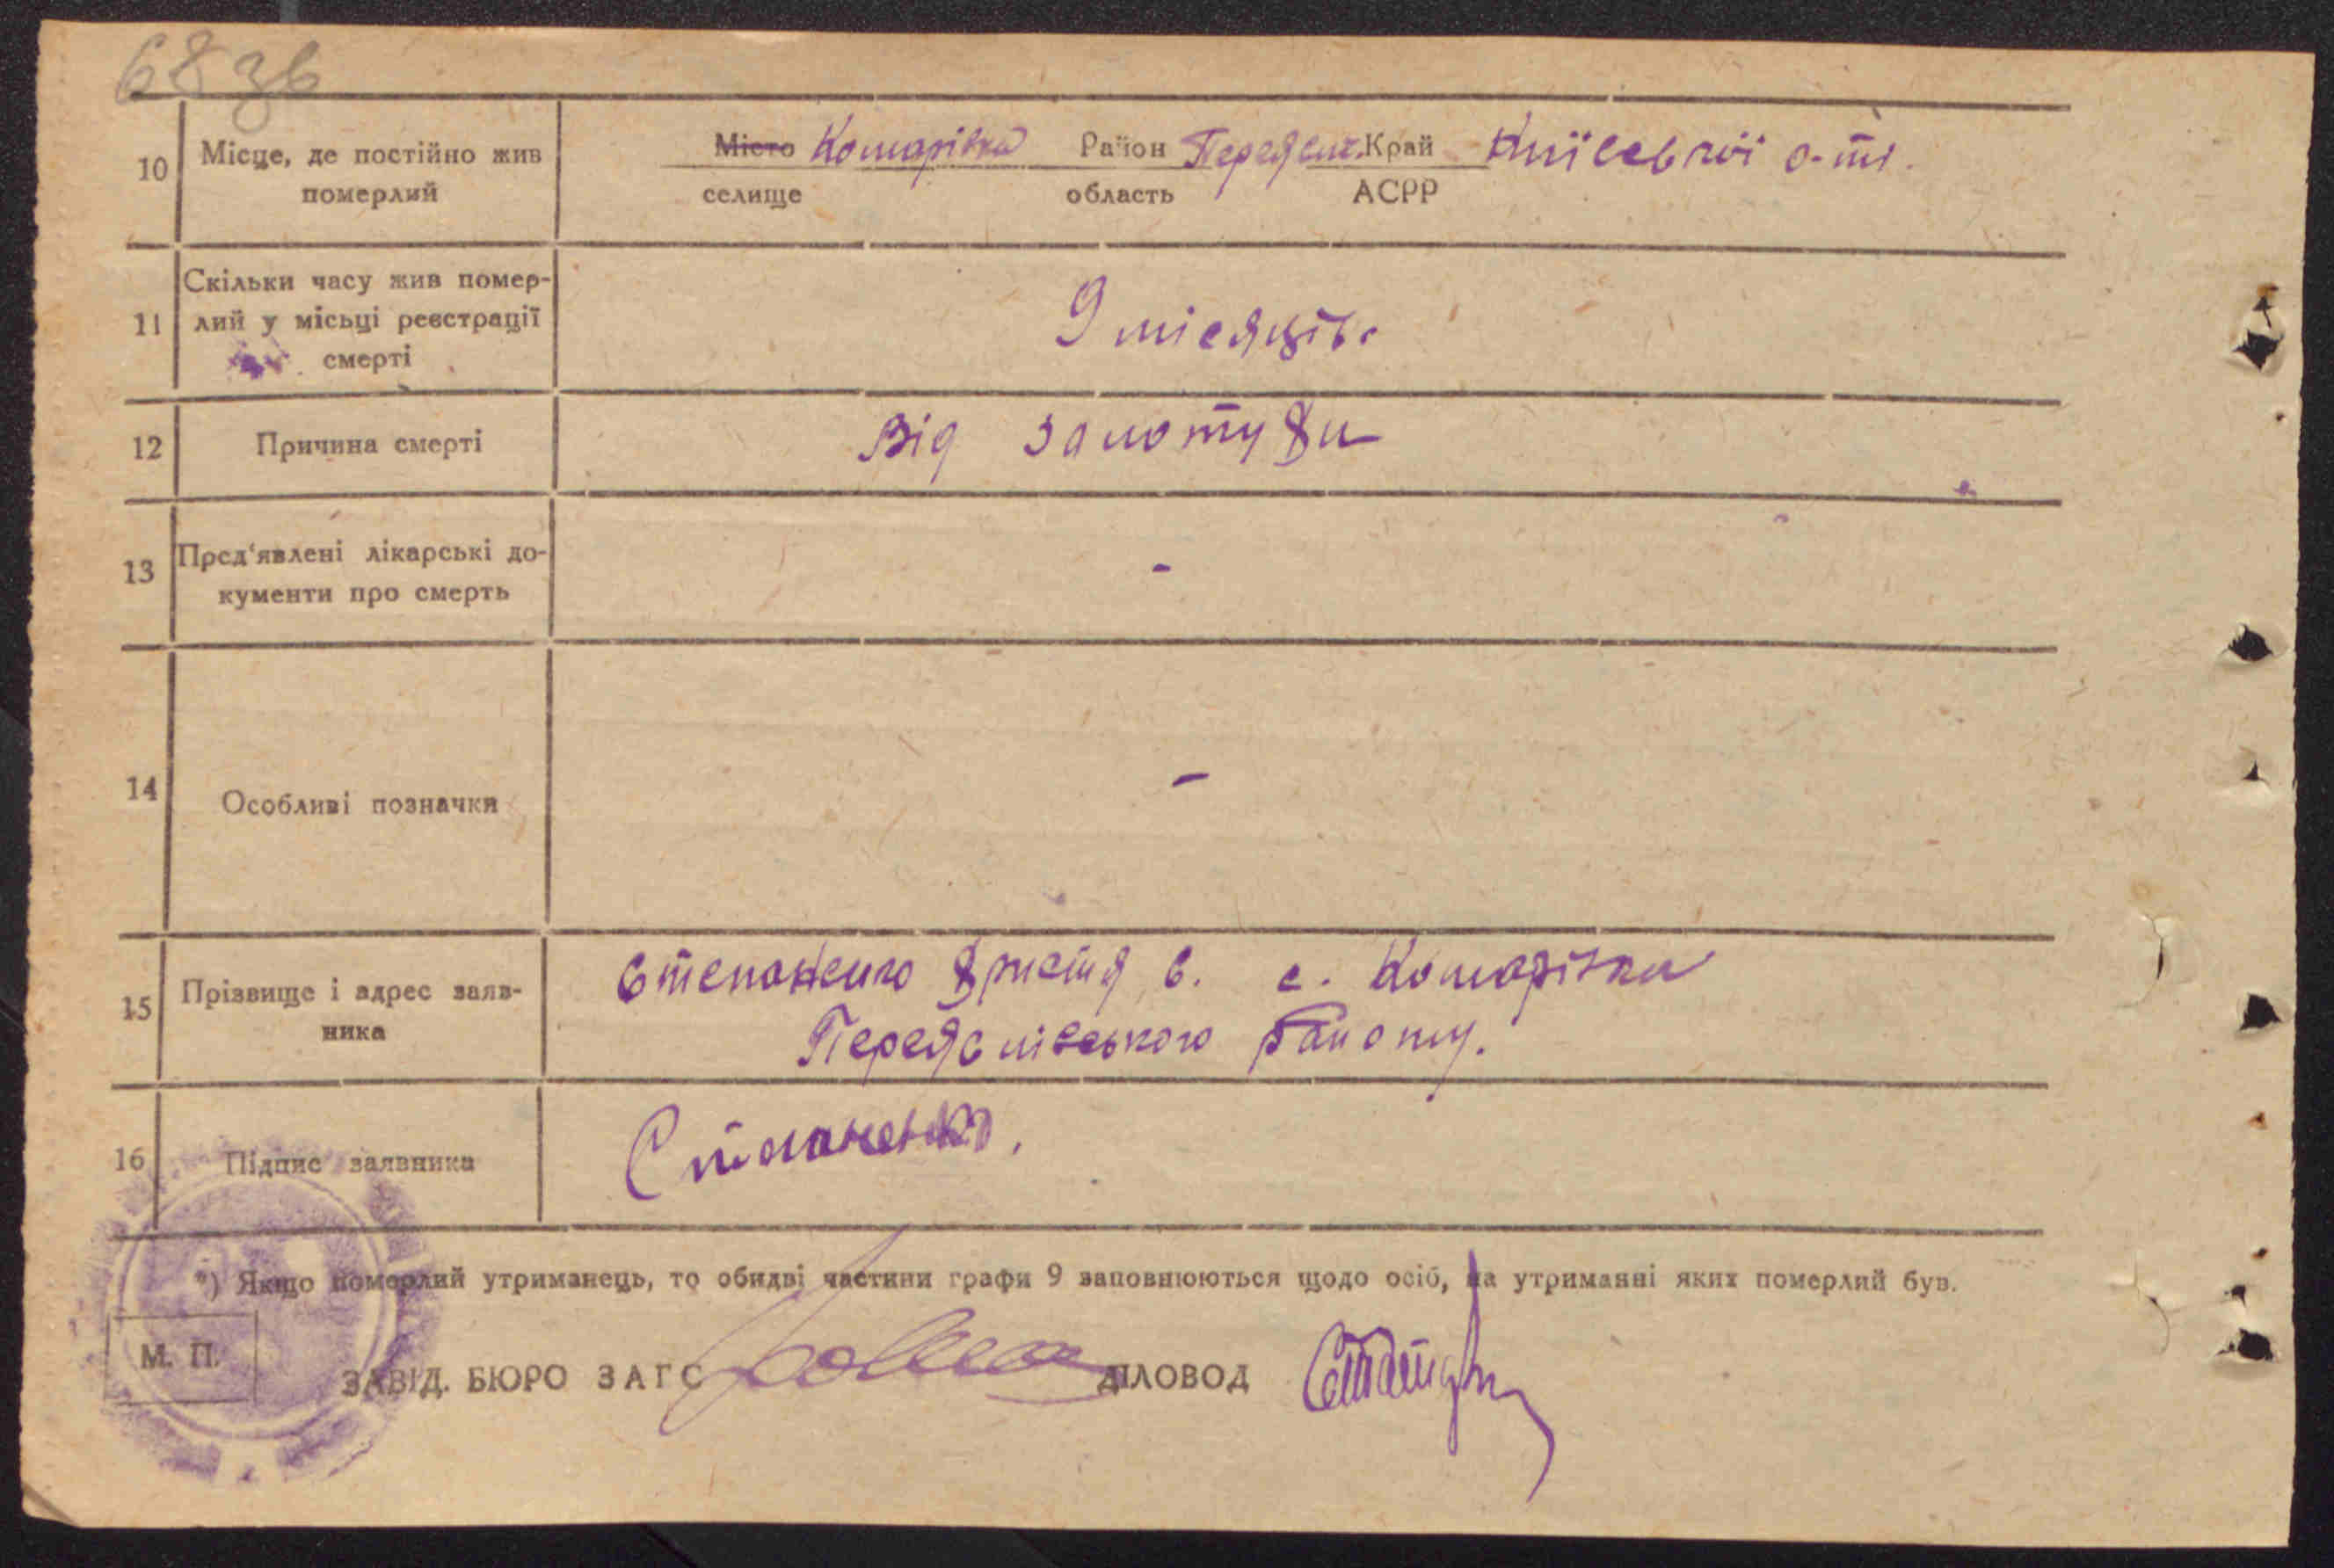 68 зв
10 Місце, де постійно жив Місто Комарівка Район Переясл. Край Київської о-ті.
померлий селище область АСРР
Скільки часу жив помер-
11 лий у місьці реєстрації 9 місяців.
смерті
12 Причина смерті Від золотухи
13 Пред'явлені лікарські до- -
кументи про смерть
14 Особливі позначки -
15 Прізвище і адрес заяв- Степаненко Христя С. с. Комарівка
ника Переяслівського району.
16 Підпис заявника Степаненко.
*) Якщо померлий утриманець, то обидві частини графи 9 заповнюються щодо осіб, на утриманні яких померлий був.
М. П.
ЗАВІД. БЮРО ЗАГС ДІЛОВОД